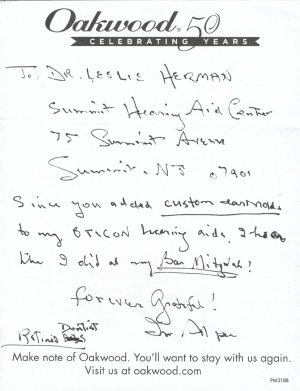 Oakwood® 50
CELEBRATING YEARS
To, DR. LESLIE HERMAN
Summit Hearing Aid Center
75 Summit Avenue
Summit, NJ 07901
Since you added custom earmolds
to my OTICON hearing aids, I hear
like I did at my Bar Mitzvah!
Forever Grateful!
Retired Dentist
Make note of Oakwood. You'll want to stay with us again.
Visit us at oakwood.com
PM2188